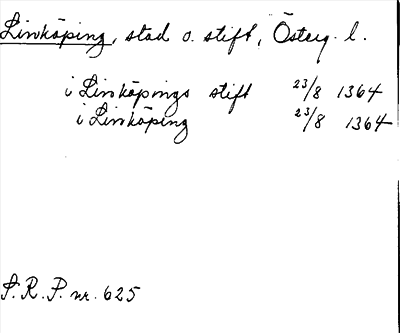 Linköping, stad o. stift, Österg. l.
i Linköpings stift 23/8 1364
i Linköping 23/8 1364
S. R. P. nr. 625